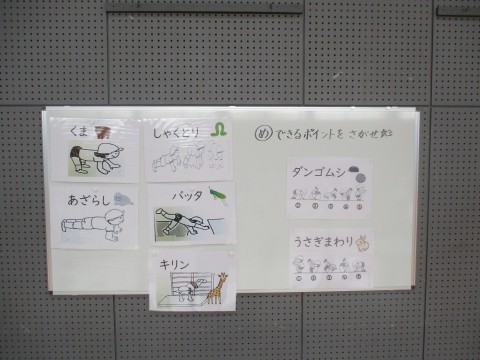 くま
しゃくとり
あざらし
バッタ
キリン
め できるポイントを さがせ
ダンゴムシ
うさぎまわり